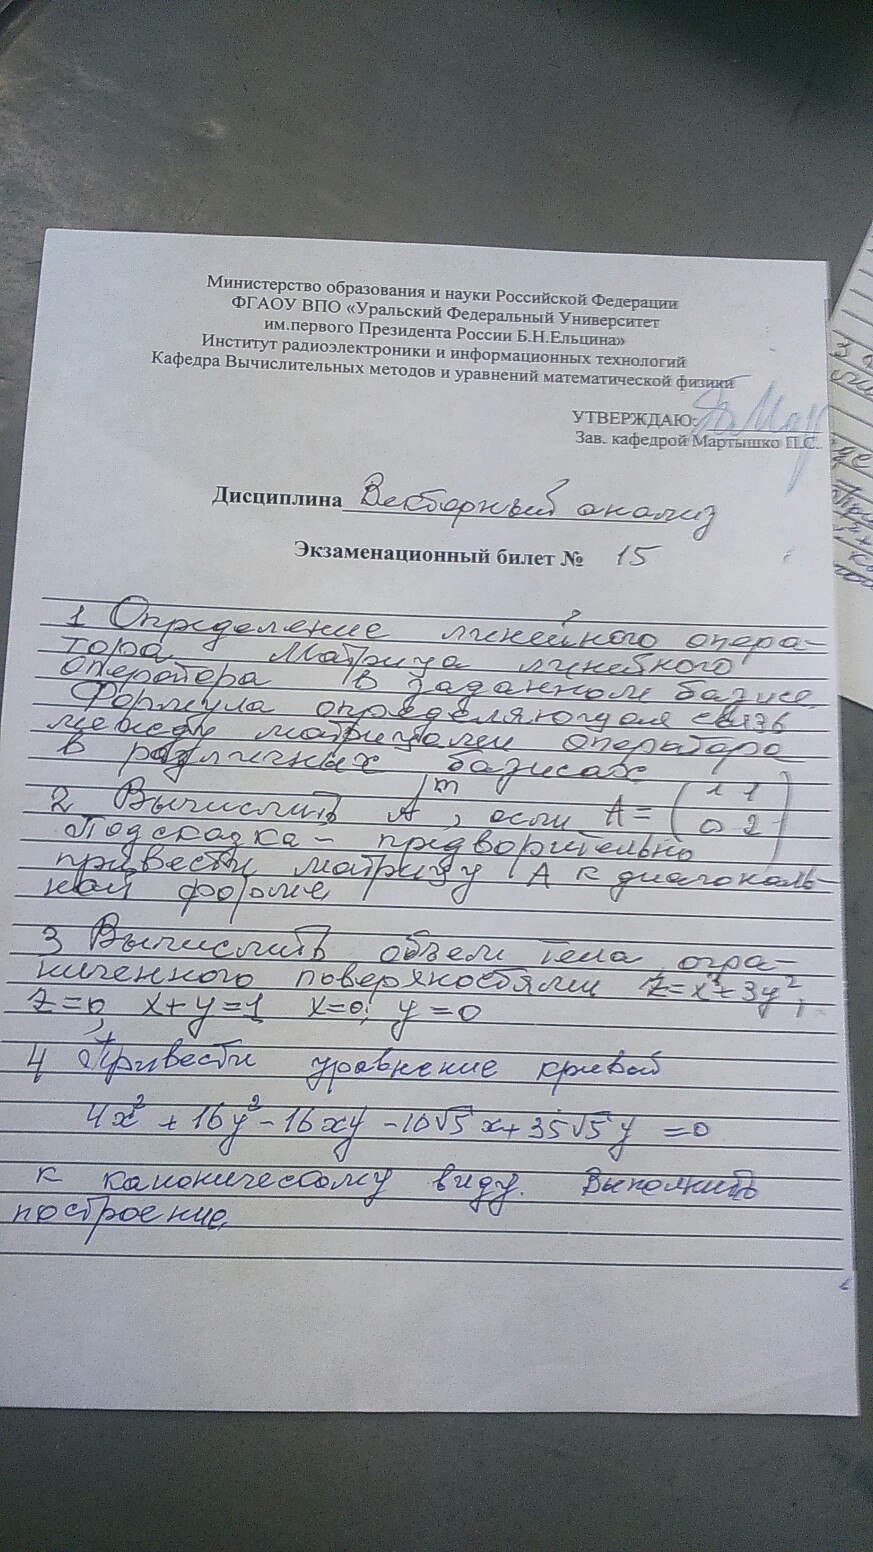 Министерство образования и науки Российской Федерации
ФГАОУ ВПО «Уральский Федеральный Университет
им.первого Президента России Б.Н.Ельцина»
Институт радиоэлектроники и информационных технологий
Кафедра Вычислительных методов и уравнений математической физики
УТВЕРЖДАЮ:
Зав. кафедрой Мартышко П.С.
Дисциплина Векторный анализ
Экзаменационный билет № 15
1 Определение линейного опера-
тора Матрица линейного
оператора в заданном базисе.
Формула определяющая связь
между матрицами оператора
в различных базисах
2 Вычислить A^m, если A = (1 1
0 2)
Подсказка – предворительно
привести матрицу A к диагональ-
ной форме
3 Вычислить объем тела огра-
ниченного поверхностями z=x²+3y²,
z=0, x+y=1 x=0; y=0
4 Привести уравнение кривой
4x²+16y²-16xy-10√5x+35√5y=0
к каноническому виду. Выполнить
построение.